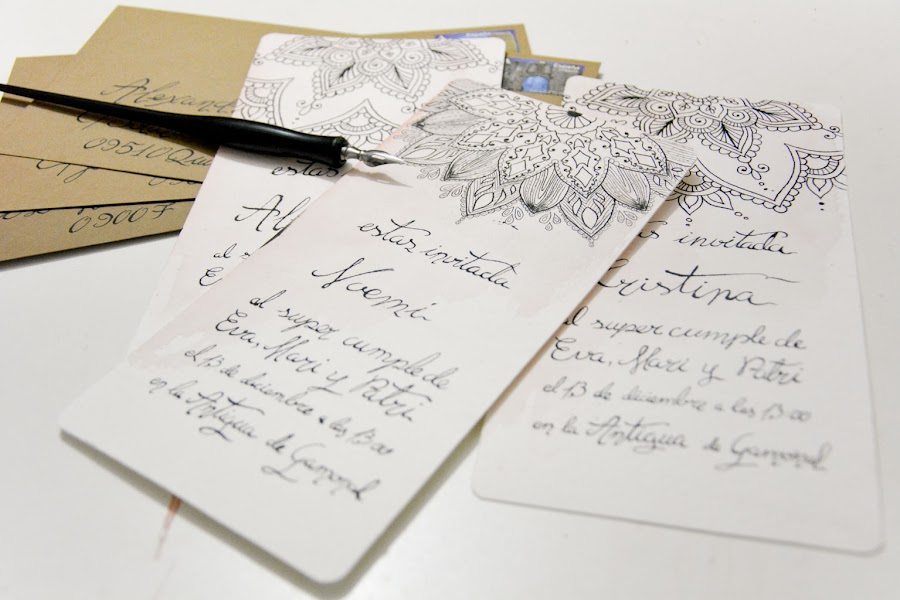 09510
09006
estas
al
estas invitada
Noemí
al super cumple de
Eva, Mari y Patri
el 13 de diciembre a las 13:00
en la Antigua de Gamonal
invitada
Cristina
al super cumple de
Eva, Mari y Patri
el 13 de diciembre a las 13:00
en la Antigua de Gamonal